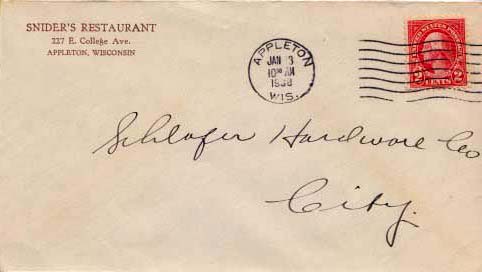 SNIDER'S RESTAURANT
227 E. College Ave.
APPLETON, WISCONSIN
APPLETON
JAN 3
10 AM
WIS.
2 CENTS 2
Schlafer Hardware Co
City.